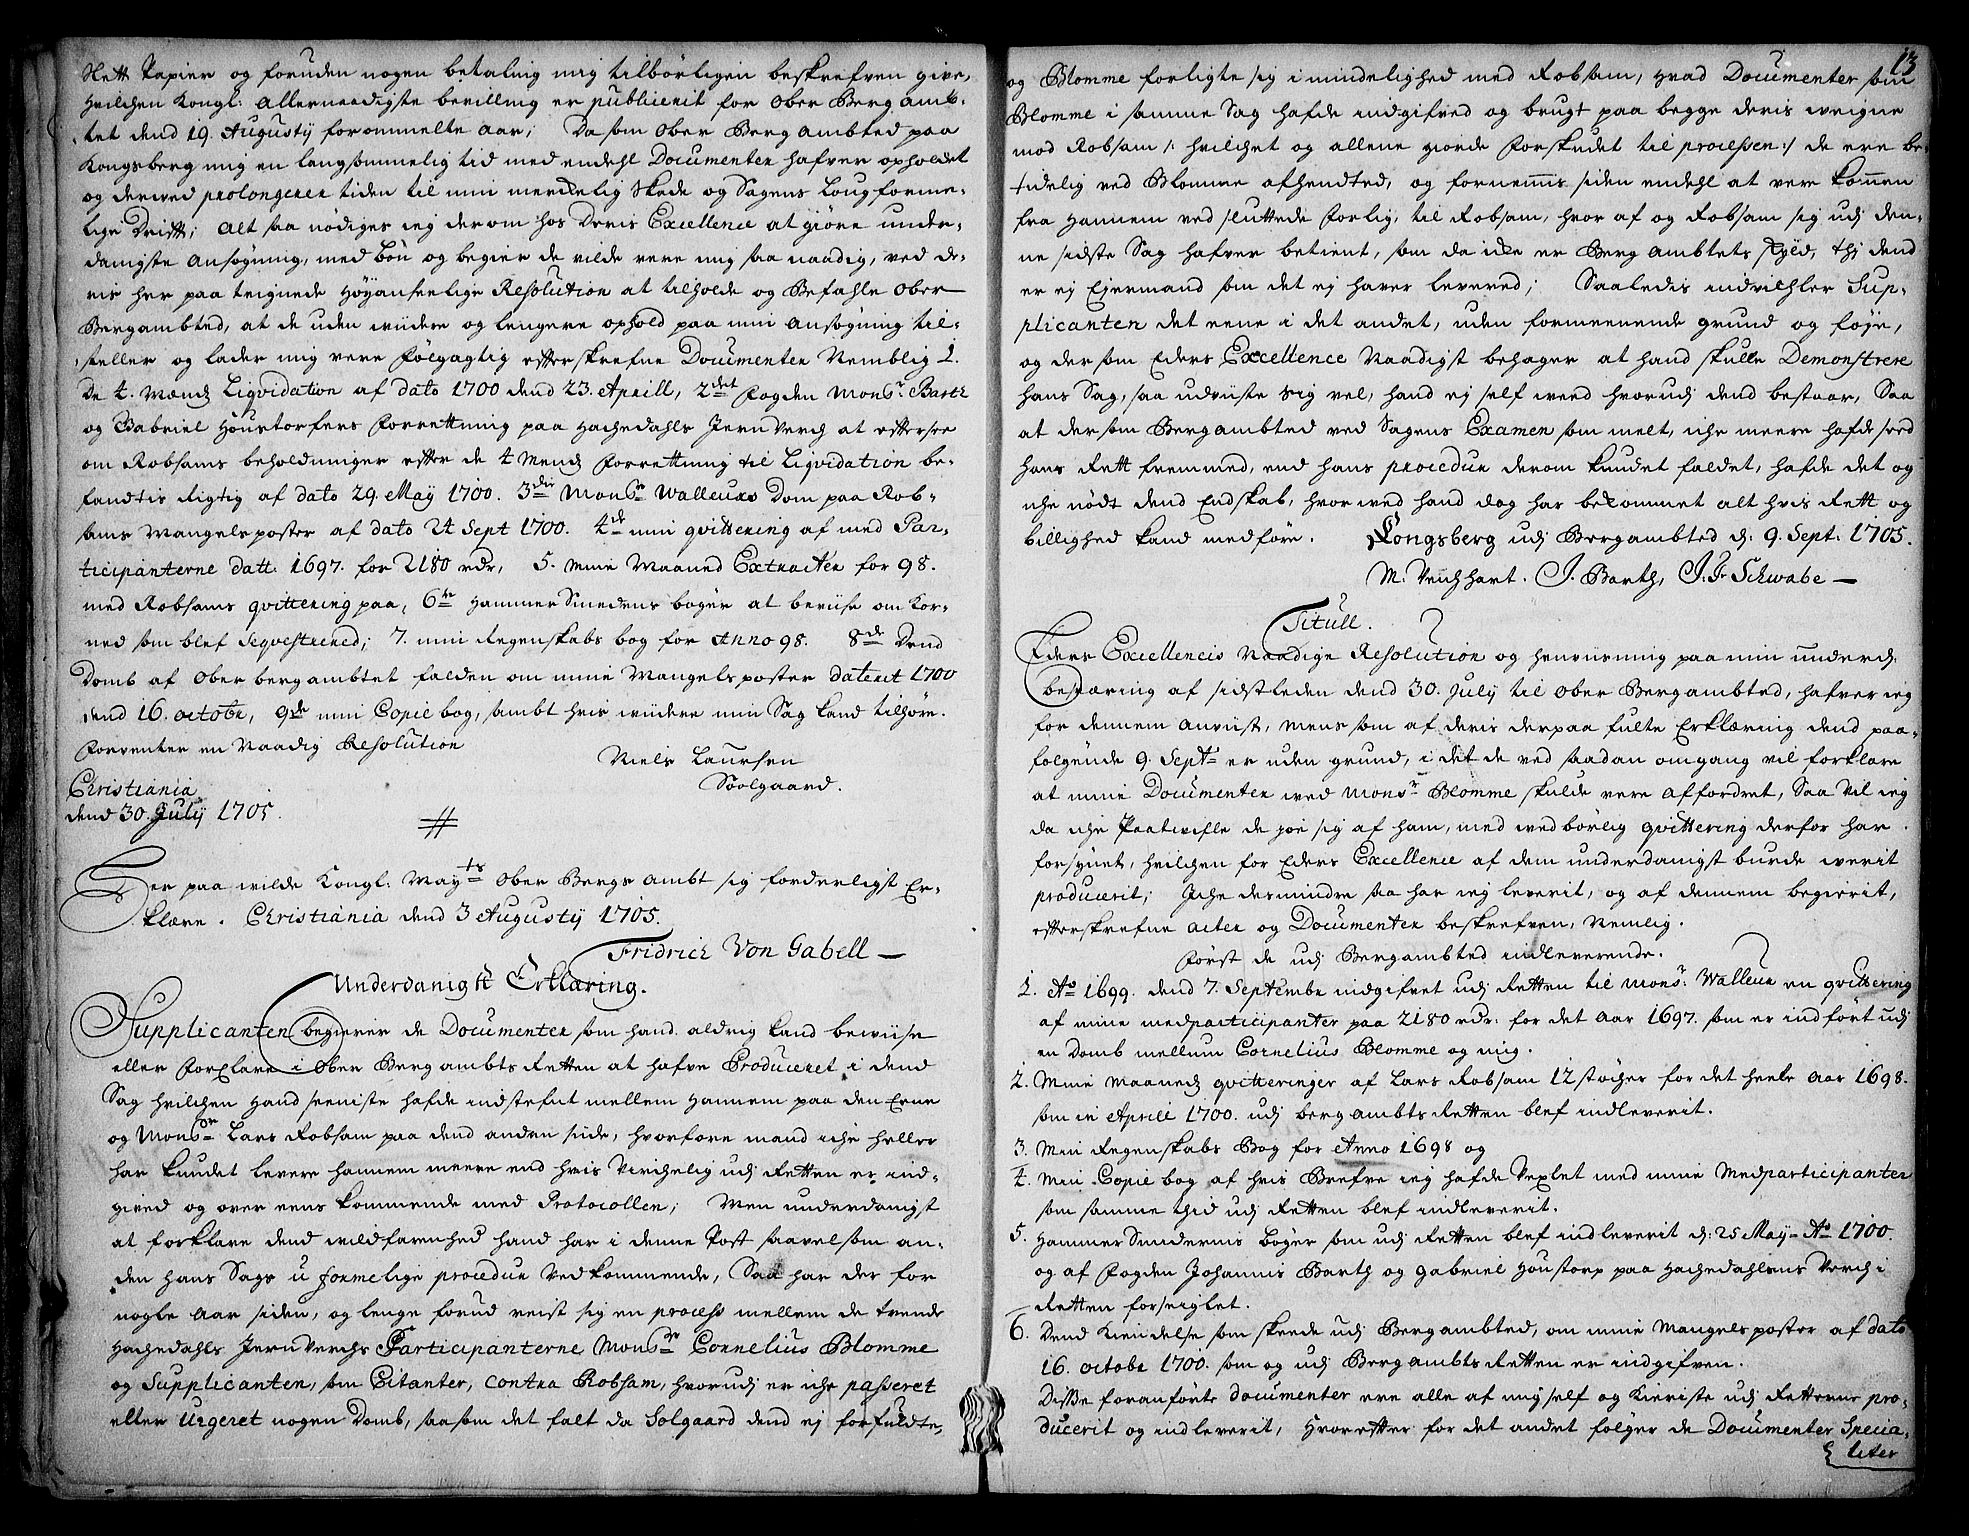 Slett Papier og foruden nogen betalnig mig tilbörligen beskrefven give,
hvilchen Kongl: Allernaadigste bevilling er publicerit for Ober Berg amb-
tet dend 19. Augustij forommelte aar; Da som Ober Berg Ambted paa
Kongsberg mig en langsommelig tid med endehl Documenter hafver opholdet
og derved prolongerer tiden til min merckelig Skade og Sagens Lougforme-
lige Drifft; Alt saa nödiges ieg derom hos Deris Excellence at giöre under-
danigste Ansögning, med bön og begier de vilde vere mig saa naadig, ved de-
ris her paa teignede Höyansenlige Resolution at tilholde og Befahle Ober
Bergambted, at de uden viidere og lengere ophold paa min Ansögning til-
steller og lader mig vere fölgagtig efterskrefne Documenter Nemblig 1.
De 4. Mends Liqvidation af dato 1700 dend 23. Aprill, 2det Fogden Monsr. Barth
og Gabriel Houstorfers Forrettning paa Hachedahls Jern Verch at efftersee
om Robsams beholdninger efter de 4 Mends Forrettning til Liqvidation be-
fandtis Rigtig af dato 29. May 1700. 3die Monsr Walleurs Dom paa Rob-
sams Mangelsposter af dato 24 Sept 1700. 4de min qvittering af med Par-
ticipanterne datt. 1697. for 2180 rdr, 5. mine Maaned Extracter for 98.
med Robsams qvittering paa, 6te Hammer Smedens bøger at beviise om Kor-
ned som blef Seqvestrered; 7. min Regenskabs bog for Anno 98. 8de Dend
Domb af Ober bergambtet falden om mine Mangelsposter daterit 1700
dend 16. octobr, 9de min Copie bog, sambt hvis viidere min Sag kand tilhöre.
Forventer en Naadig Resolution
Niels Laursen
Soolgaard.
Christiania
dend 30. Julij 1705.
#
Her paa wilde Kongl: Mayts Ober Bergs ambt sig forderligst Er-
klære. Christiania dend 3 Augustij 1705.
Fridrich Von Gabell —
Underdanigst Erklæring.
Supplicanten begierer de Documenter som hand aldrig kand beviise
eller Forklare i Ober Berg ambts Retten at hafve Produceret i dend
Sag hvilchen hand seeniste hafde indstefnt mellem Hannem paa den Eene
og Monsr Lars Robsam paa dend anden siide, hvorfore mand iche heller
har kundet levere hannem meere end hvis Virchelig udj Retten er ind-
gived og over eens kommende med Protocollen; Men underdanigst
at forklare dend vildfarenhed hand har i denne Post saavelsom an-
den hans Sags uformelige procedur Vedkommende, Saa har der for
nogle aar siden, og lenge forud reist sig en process mellem de tvende
Hachedahls JernVerchs Participanterne Monsr Cornelius Blomme
og Supplicanten, som Citanter, contra Robsam, hvorudj er iche passeret
eller Urgeret nogen Domb, saasom det falt da Solgaard dend ej forfuldte,
13
og Blomme forligte sig i mindelighed med Robsam, Hvad Documenter som
Blomme i samme Sag hafde indgifved og brugt paa begge deris veigne
mod Robsam /: hvilchet og allene giorde Forskudet til processen :/ de ere be-
tidelig ved Blomme afhendted, og fornemmis siden endehl at vere kommen
fra Hannem ved sluttede Forlig, til Robsam, hvor af og Robsam sig udj den-
ne sidste Sag hafver betient, som da icke er Berg Ambtets skyld, thj dend
er ej Ejermand som det ej haver levered; Saaledis indvichler Sup-
plicanten det eene i det andet, uden formeenende grund og föje,
og dersom Eders Excellence Naadigst behager at hand skulle Demonstrere
hans Sag, saa udviiste sig vel, hand ej self weed hvorudj dend bestaar, Saa
at dersom Bergambted ved Sagens Examen som melt, iche meere hafde seed
hans Rett fremmed, end hans procedur derom kundet faldet, hafde det og
iche nödt dend Endskab, hvorved hand dog har bekommet alt hvis Rett og
billighed kand medföre. Kongsberg udj Bergambted d: 9. Sept: 1705.
M: Veichhart. J. Barth, J. Fr Schwabe —
Titull.
Eders Excellencis Naadige Resolution og henviisning paa min underd:
besværing af sidstleden dend 30. July til Ober Bergambted, hafver ieg
for dennem anviist, mens som af deris derpaa fulte Erklæring dend paa-
fölgende 9. Septr er uden grund, i det de ved saadan omgang vil forklare
at mine Documenter ved Monsr Blomme skulde vere affordret, Saa vil ieg
da iche Paatvifle de joe sig af ham, med wedbörlig qvittering derfor har
forsynet, hvilchen for Eders Excellence af dem underdanigst burde werit
producerit; Iche desmindre saa har ieg leverit, og af dennem begierit,
effterskrefne acter og Documenter beskrefven, Nemlig.
Först de udj Bergambted indleverende.
1. Ao 1699. dend 7. Septembr indgifvet udj Retten til Monsr. Walleur en qvittering
af mine medparticipanter paa 2180 rdr. for det Aar 1697. som er indfört udj
en Domb mellum Cornelius Blomme og mig.
2. Mine maaneds qvitteringer af Lars Robsam 12 stöcher for det heele Aar 1698.
som in Aprili 1700. udj berg ambts Retten blef indleverit.
3. Min Regenskabs Bog for Anno 1698 og
4. Min Copie bog af hvis Brefve ieg hafde Vexlet med mine Medparticipanter
som samme thid udj Retten blef indleverit.
5. Hammer Smedernis böger som udj Retten blef indleverit d: 25 May Ao 1700
og af Fogden Johannis Barth og Gabriel Houstorp paa Hachedahlens Verch i
Retten forseiglet.
6. Dend Kiendelse som skeede udj Bergambted, om mine Mangels poster af dato
16. octobr 1700. som og udj Bergambts Retten er indgifven.
Disse foranförte documenter ere alle af mig self og Kieriste udj Retterne pro-
ducerit og indleverit, Hvorefter for det andet fölger de Documenter Specia-
liter